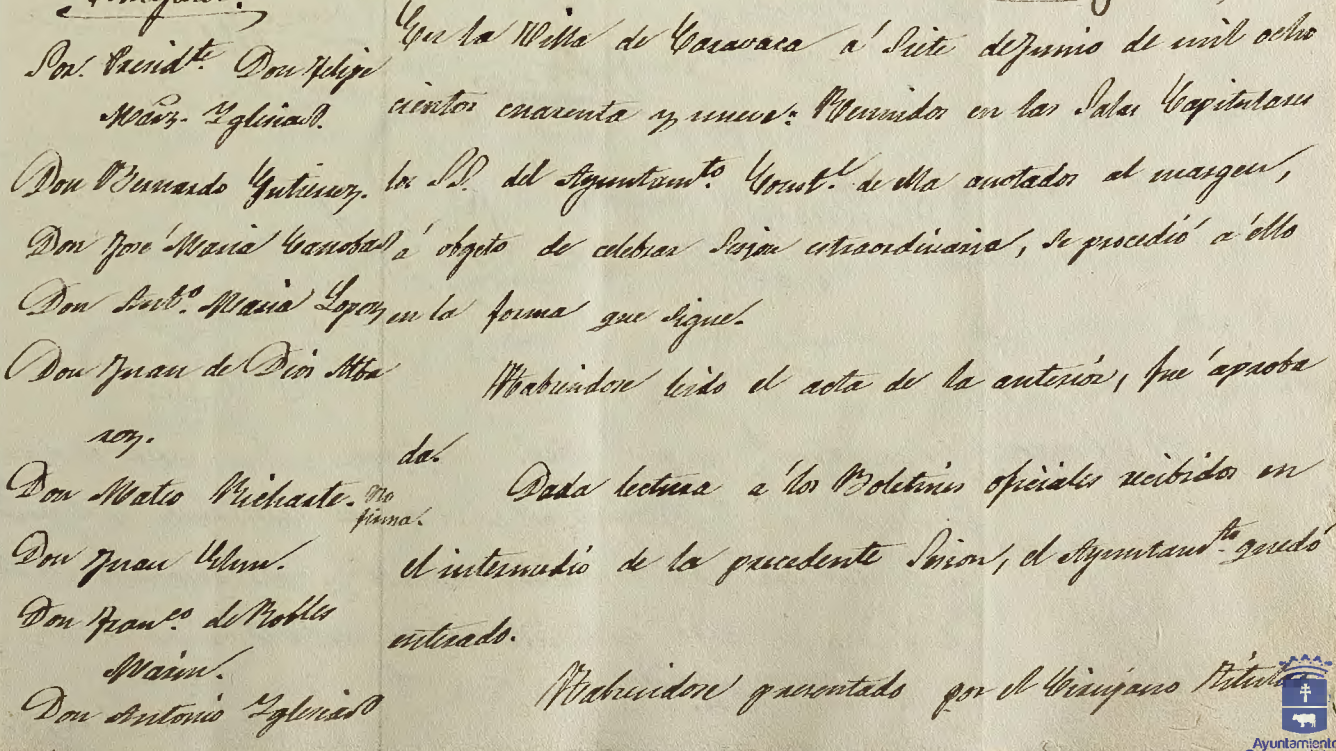 Por. Presid.te Don Felipe
Mrz. Yglesias.
Don Bernardo Gutierrez.
Don José Maria Canobas
Don Ant.o Maria Lopez
Don Juan de Dios Alba
rez.
Don Mateo Richarte. No
firma.
Don Juan
Don Fran.co de Robles
Marin.
Don Antonio Yglesias
En la Villa de Caravaca á Siete de Junio de mil ocho
cientos cuarenta y nueve: Reunidos en las Salas Capitulares
los SS. del Ayuntam.to Const.l de ella anotados al margen,
á objeto de celebrar Sesion estraordinaria, se procedió a ello
en la forma que sigue.
Habiendose leido el acta de la anterior, fué aproba
da.
Dada lectura á los Boletines oficiales recibidos en
el intermedio de la precedente Sesion, el Ayuntam.to quedó
enterado.
Habiendose presentado por el Cirujano
Ayuntamiento